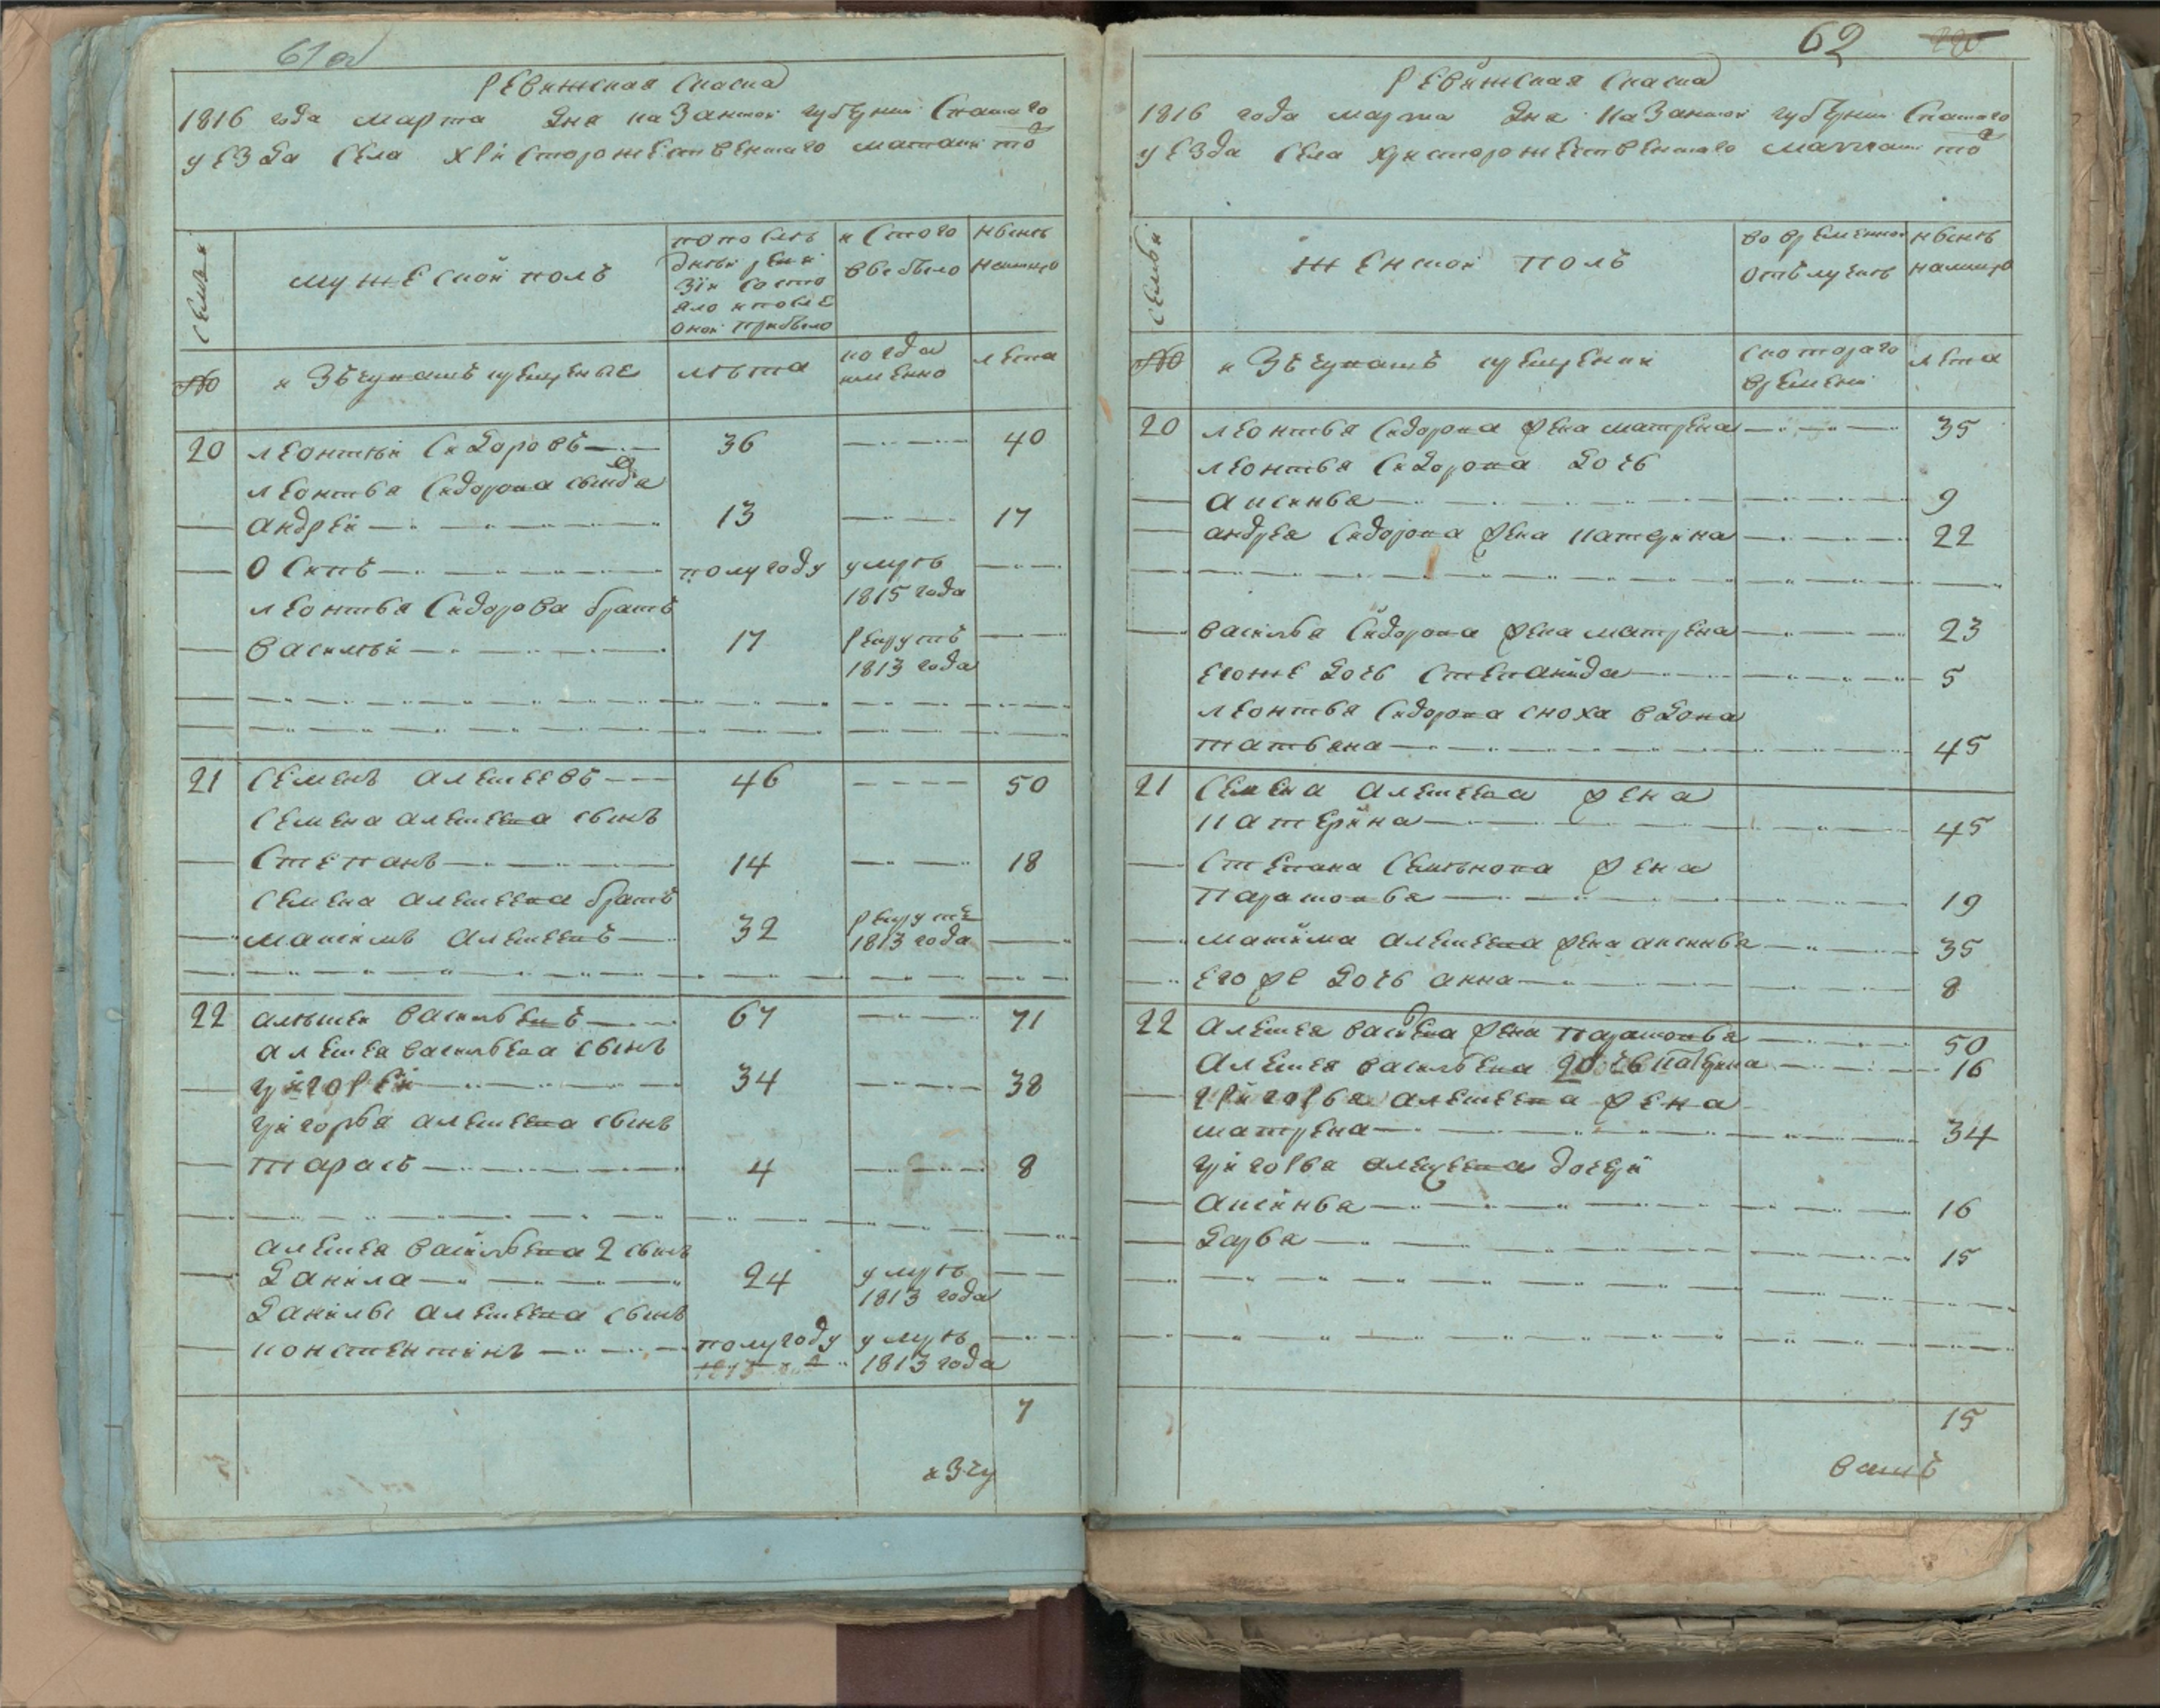 61 об
Ревижская скаска
1816 года марта дня казанской губернии спаского
уезда села христорожественскаго матаки тож
Семьи
мужеской полъ
по последней ревизіи состояло и после оной прибыло
и стого выбыло
ныне налицо
№
изъ чувашъ крещеные
лета
когда именно
лета
20 леонтей сидоровъ 36 40
леонтья сидорова сынья
андрей 13 17
осипъ полугоду умре
1815 года
леонтья сидорова братъ
василей 17 рекрутъ
1813 года
21 семенъ алексеевъ 46 50
семена алексеева сынъ
степанъ 14 18
семена алексеева братъ
максимъ алексеевъ 32 рекрутъ
1813 года
22 алексей васильевъ 67 71
алексея васильева сынъ
григорей 34 38
григорья алексеева сынъ
тарасъ 4 8
алексея васильева 2 сынъ
данила 24 умре
1813 года
данилы алексеева сынъ
констентинъ полугоду умре
1813 года
7
изчу
62
Ревижская скаска
1816 года марта дня казанской губернии спаского
уезда села христорожественскаго матаки тож
Семьи
женской полъ
во временной отлучке
ныне налицо
№
изъ чувашъ крещении
скотораго времени
лета
20 леонтья сидорова жена матрена 35
леонтья сидорова дочь
аксинья 9
андрея сидорова жена катерина 22
василья сидорова жена матрена 23
егоже дочь степанида 5
леонтья сидорова сноха вдова
татьяна 45
21 семена алексеева жена
катерина 45
степана семенова жена
парасковья 19
максима алексеева жена аксинья 35
егоже дочь анна 8
22 алексея васильева жена парасковья 50
алексея васильева дочь катерина 16
григорья алексеева жена
матрена 34
григорья алексеева дочери
аксинья 16
дарья 15
15
вашъ